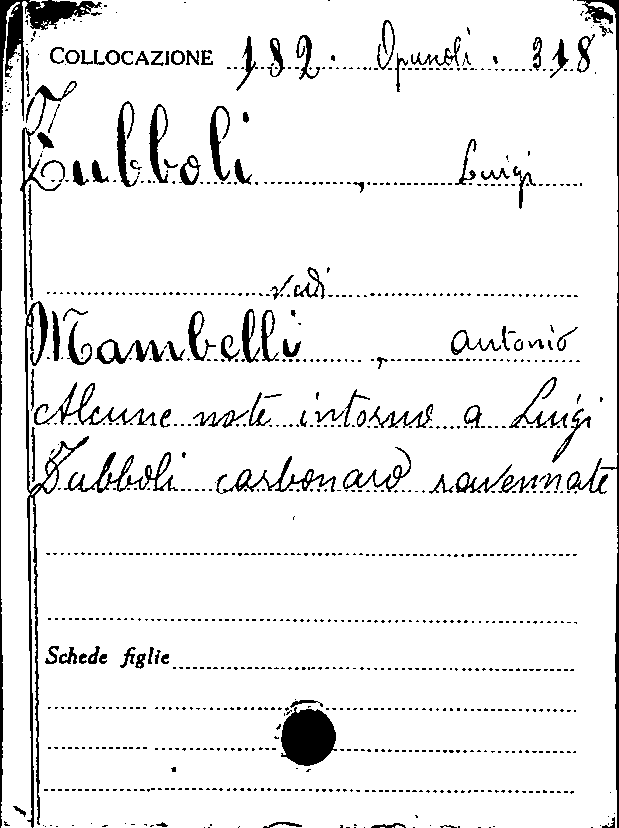 COLLOCAZIONE 182. Opuscoli. 318
Zubboli, Luigi
vedi
Mambelli, Antonio
Alcune note intorno a Luigi
Zubboli carbonaro ravennate
Schede figlie